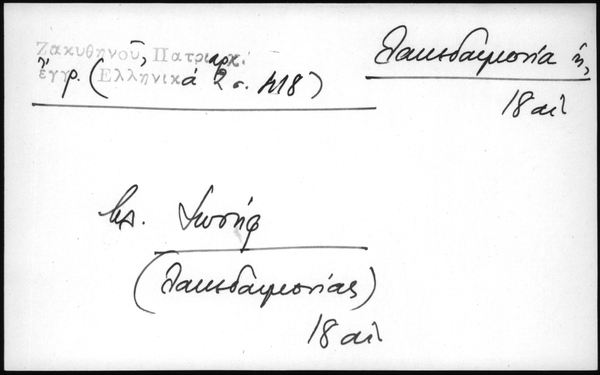 Ζακυθηνοῦ, Πατριαρχ.
ἔγγρ. (Ἑλληνικά 2 σ. 418)
Λακεδαιμονία ἡ,
18 αἰ
Μ. Ἰωσήφ
(Λακεδαιμονίας)
18 αἰ